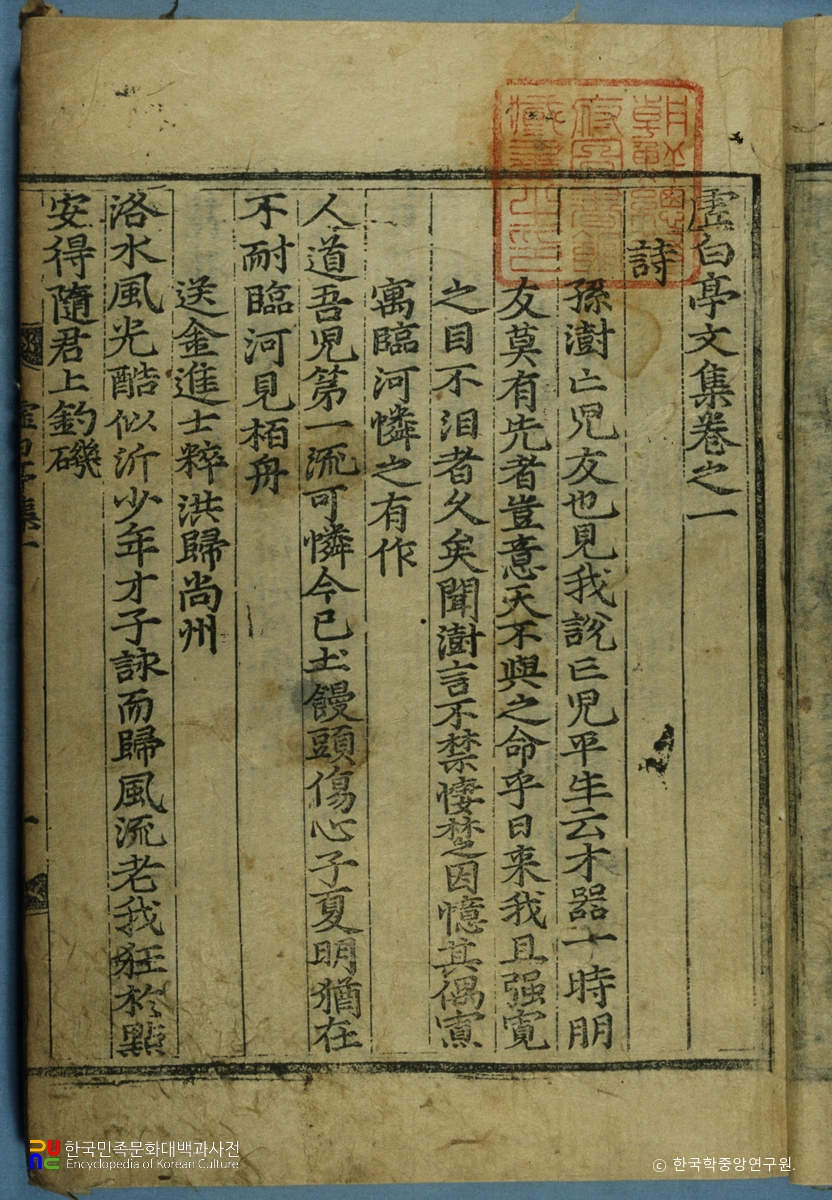 虛白亭文集卷之一
詩
孫澍亡兒友也見我說亡兒平生云才器一時朋
友莫有先者豈意天不與之命乎日來我且强寬
之目不泪者久矣聞澍言不禁悽楚因憶其偶
寓臨河憐之有作
人道吾兒第一流可憐今已土饅頭傷心子夏明猶在
不耐臨河見栢舟
送金進士粹洪歸尙州
洛水風光酷似沂少年才子詠而歸風流老我狂於點
安得隨君上釣磯
虛白亭集一
一
朝鮮總督府圖書館藏書之印
한국민족문화대백과사전
Encyclopedia of Korean Culture
ⓒ 한국학중앙연구원